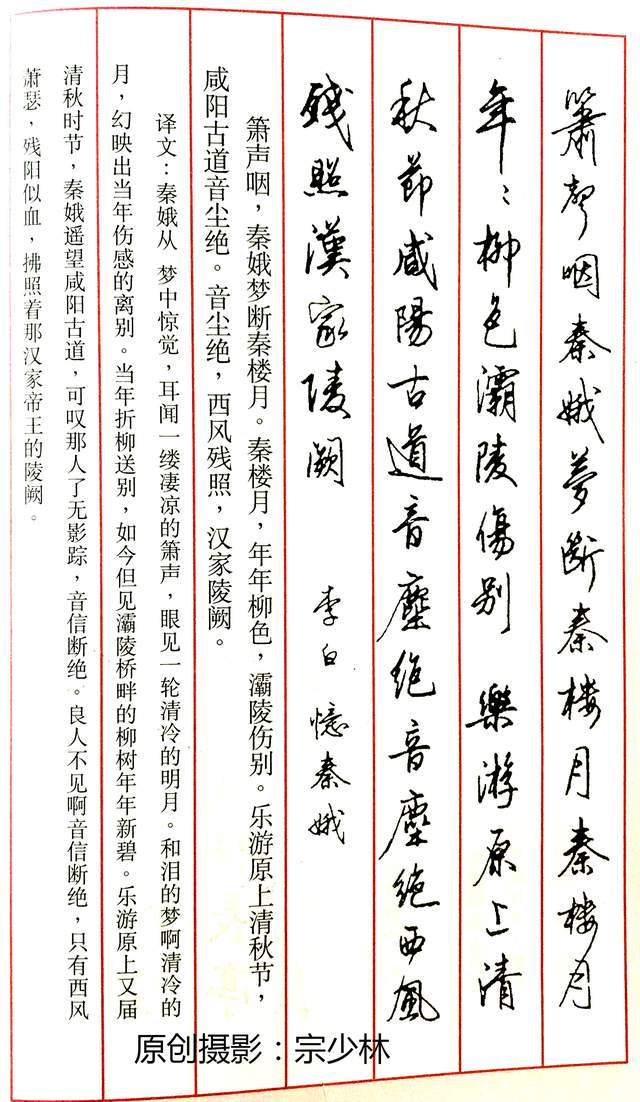 簫聲咽秦娥夢斷秦樓月秦樓月
年〻柳色灞陵傷别 樂游原上清
秋節咸陽古道音塵绝音塵绝西風
殘照漢家陵阙 李白憶秦娥
箫声咽，秦娥梦断秦楼月。秦楼月，年年柳色，灞陵伤别。乐游原上清秋节，
咸阳古道音尘绝。音尘绝，西风残照，汉家陵阙。
译文：秦娥从 梦中惊觉，耳闻一缕凄凉的箫声，眼见一轮清冷的明月。和泪的梦啊清冷的
月，幻映出当年伤感的离别。当年折柳送别，如今但见灞陵桥畔的柳树年年新碧。乐游原上又届
清秋时节，秦娥遥望咸阳古道，可叹那人了无影踪，音信断绝。良人不见啊音信断绝，只有西风
萧瑟，残阳似血，拂照着那汉家帝王的陵阙。
原创摄影：宗少林